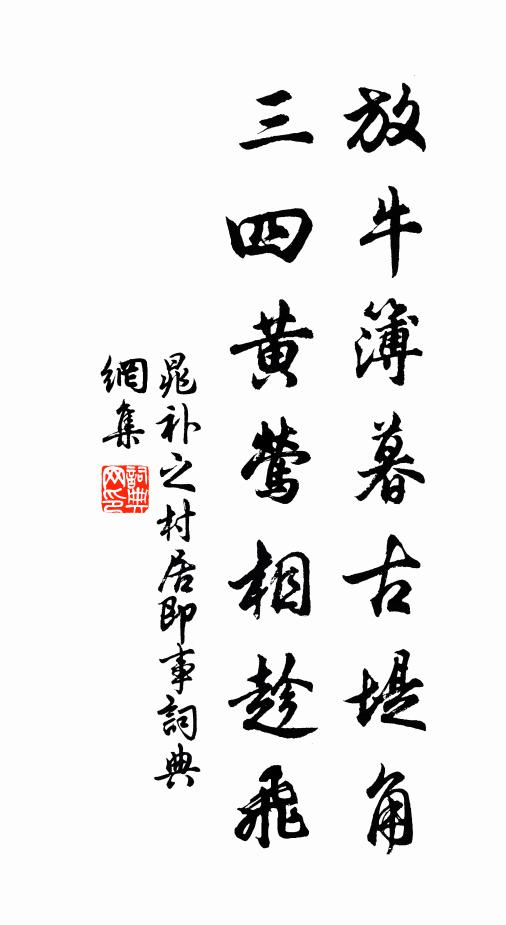 放牛簿暮古堤角
三四黄鶯相趁飛
晁补之村居即事詞典
網集
詞典网印